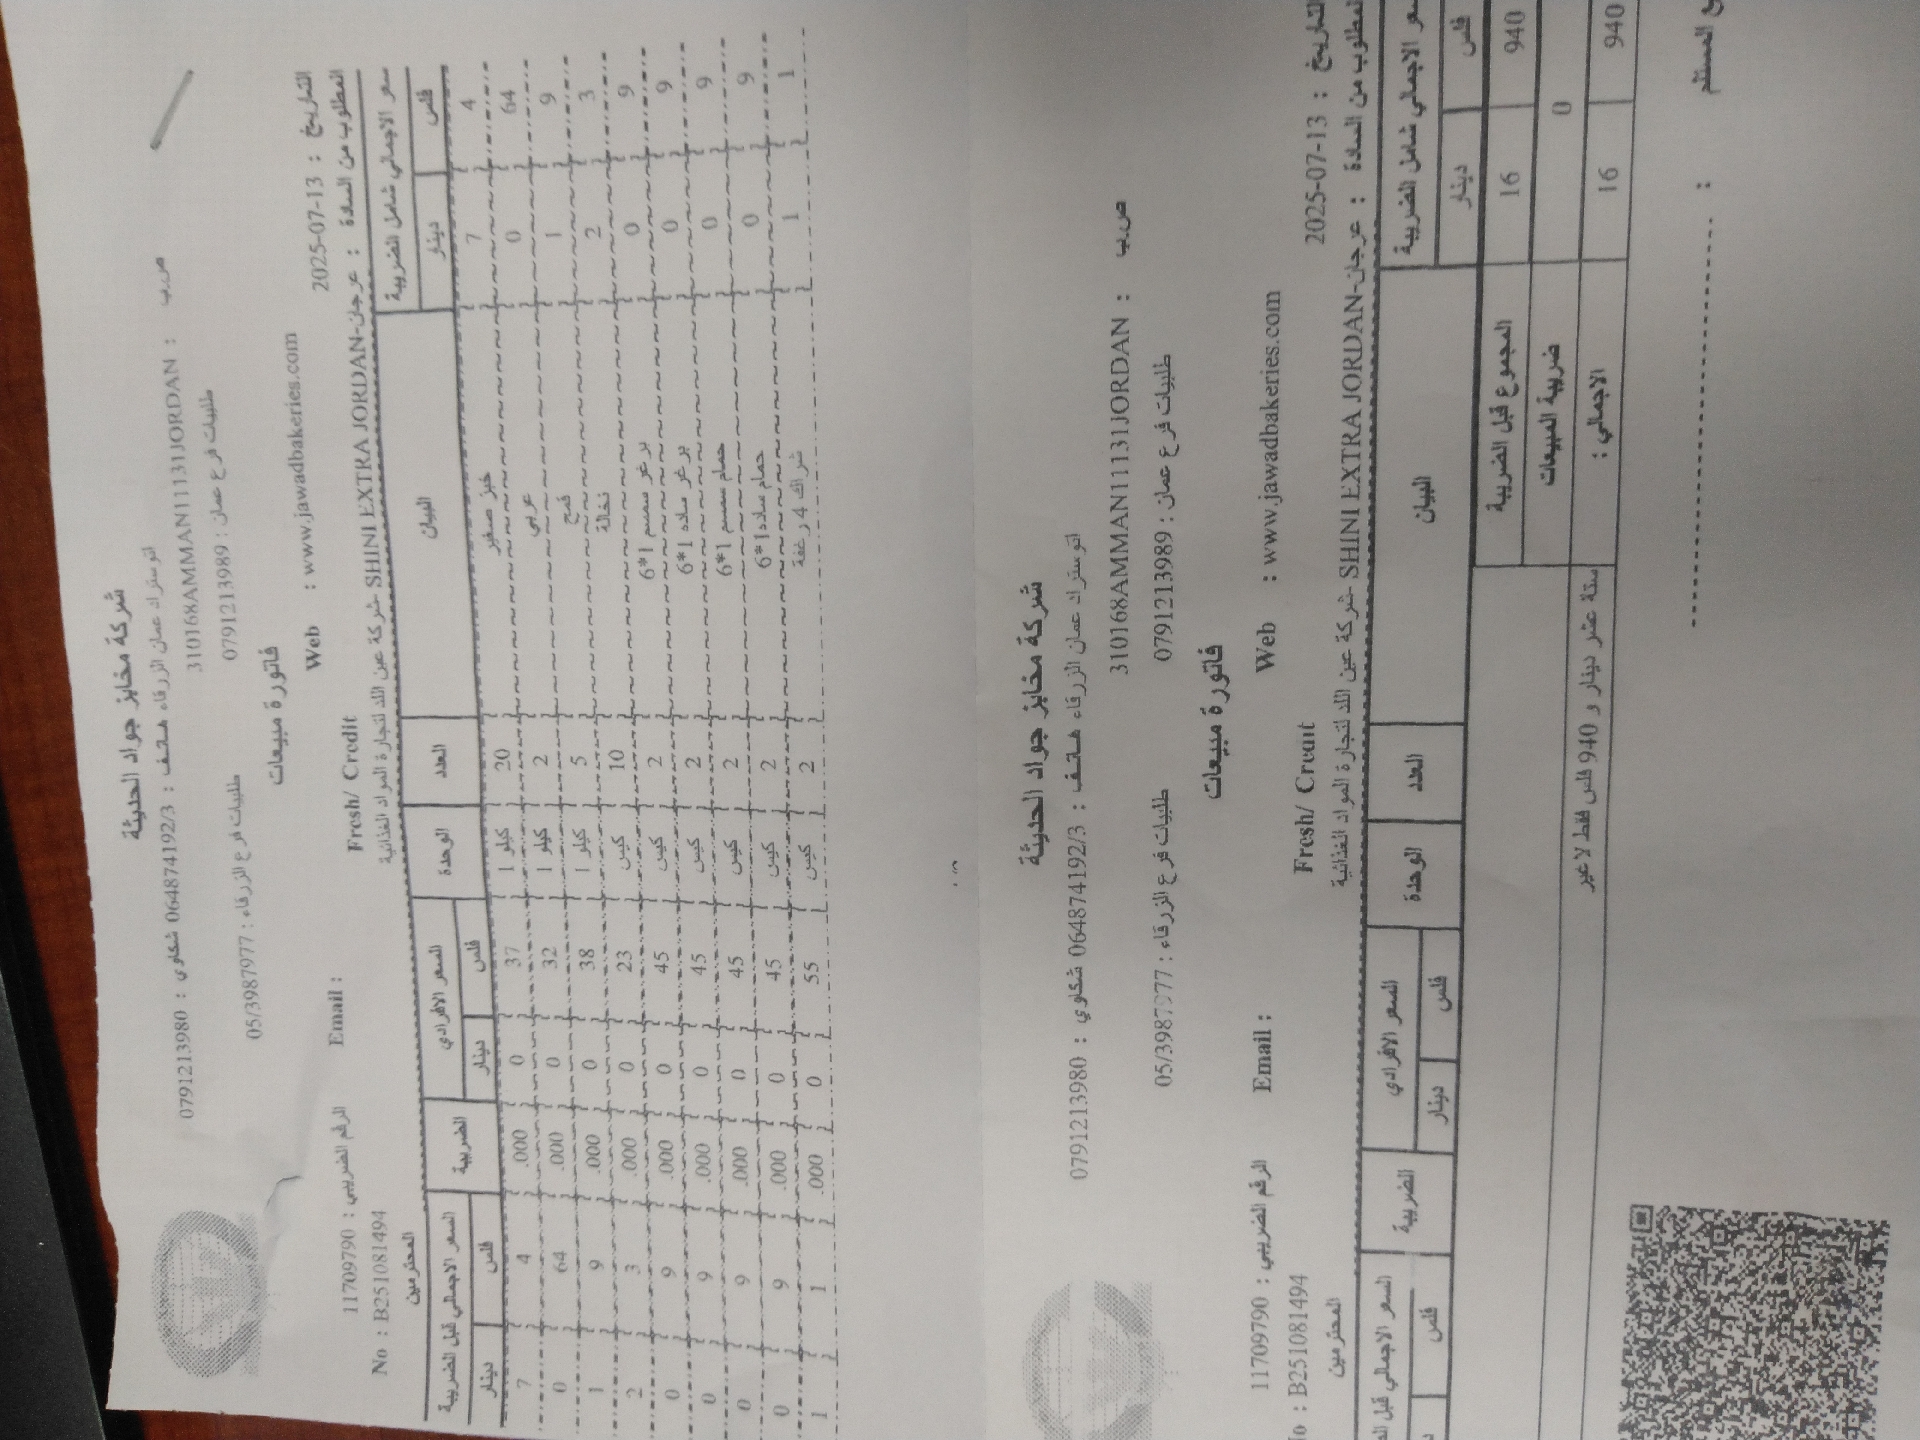 شركة مخابز جواد الحديثة
اتوستراد عمان الزرقاء هاتف : 064874192/3 شكاوي : 0791213980
ص.ب : 310168AMMAN11131JORDAN
طلبيات فرع عمان : 0791213989 طلبيات فرع الزرقاء : 05/3987977
فاتورة مبيعات
Web : www.jawadbakeries.com Email :
التاريخ : 2025-07-13 Fresh/ Credit الرقم الضريبي : 11709790
المطلوب من السادة : عرجان-SHINI EXTRA JORDAN- شركة عين اللد لتجارة المواد الغذائية No : B251081494
المحترمين
السعر الاجمالي شامل الضريبة البيان العدد الوحدة السعر الافرادي الضريبة السعر الاجمالي قبل الضريبة
دينار فلس دينار فلس دينار فلس
7 4 خبز صغير 20 كيلو 1 0 37 .000 7 4
0 64 عربي 2 كيلو 1 0 32 .000 0 64
1 9 قمح 5 كيلو 1 0 38 .000 1 9
2 3 نخالة 10 كيس 0 23 .000 2 3
0 9 برغر سمسم 1*6 2 كيس 0 45 .000 0 9
0 9 برغر ساده 1*6 2 كيس 0 45 .000 0 9
0 9 حمام سمسم 1*6 2 كيس 0 45 .000 0 9
0 9 حمام ساده 1*6 2 كيس 0 45 .000 0 9
1 1 شراك 4 رغفة 2 كيس 0 55 .000 1 1
شركة مخابز جواد الحديثة
اتوستراد عمان الزرقاء هاتف : 064874192/3 شكاوي : 0791213980
ص.ب : 310168AMMAN11131JORDAN
طلبيات فرع عمان : 0791213989 طلبيات فرع الزرقاء : 05/3987977
فاتورة مبيعات
Web : www.jawadbakeries.com Email :
التاريخ : 2025-07-13 Fresh/ Credit الرقم الضريبي : 11709790
المطلوب من السادة : عرجان-SHINI EXTRA JORDAN- شركة عين اللد لتجارة المواد الغذائية No : B251081494
المحترمين
السعر الاجمالي شامل الضريبة البيان العدد الوحدة السعر الافرادي الضريبة السعر الاجمالي قبل
دينار فلس دينار فلس فلس
940 16 المجموع قبل الضريبة
0 ضريبة المبيعات
940 16 الاجمالي : ستة عشر دينار و 940 فلس فقط لا غير
المستلم :